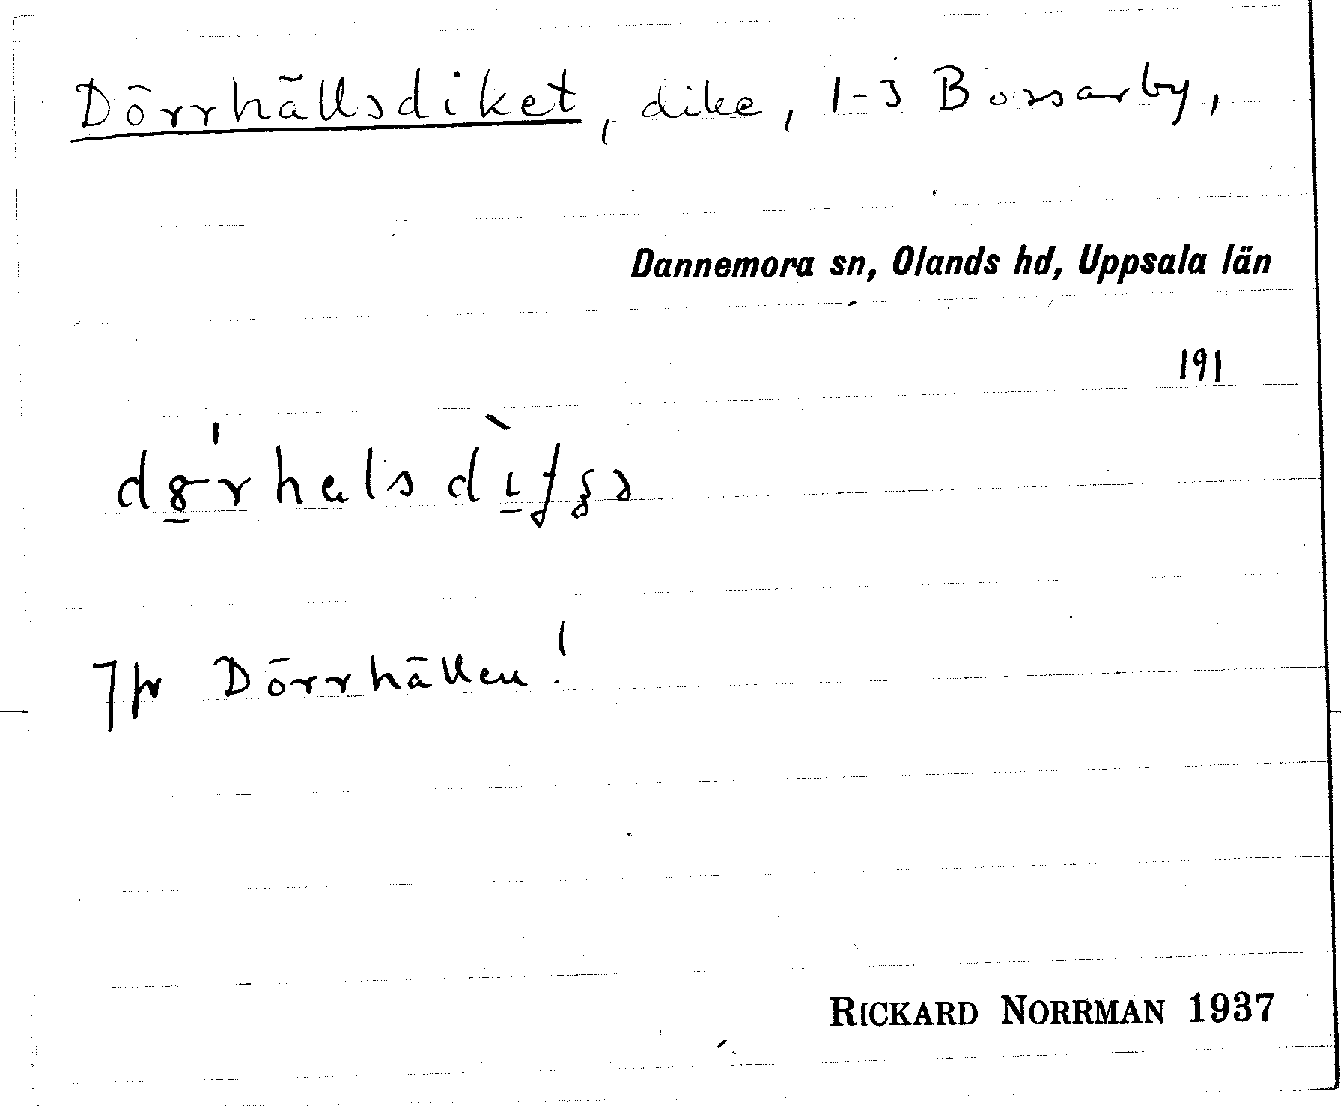 Dörrhällsdiket, dike, 1-3 Bossarby,
Dannemora sn, Olands hd, Uppsala län
191
Dörrhällen!
RICKARD NORRMAN 1937